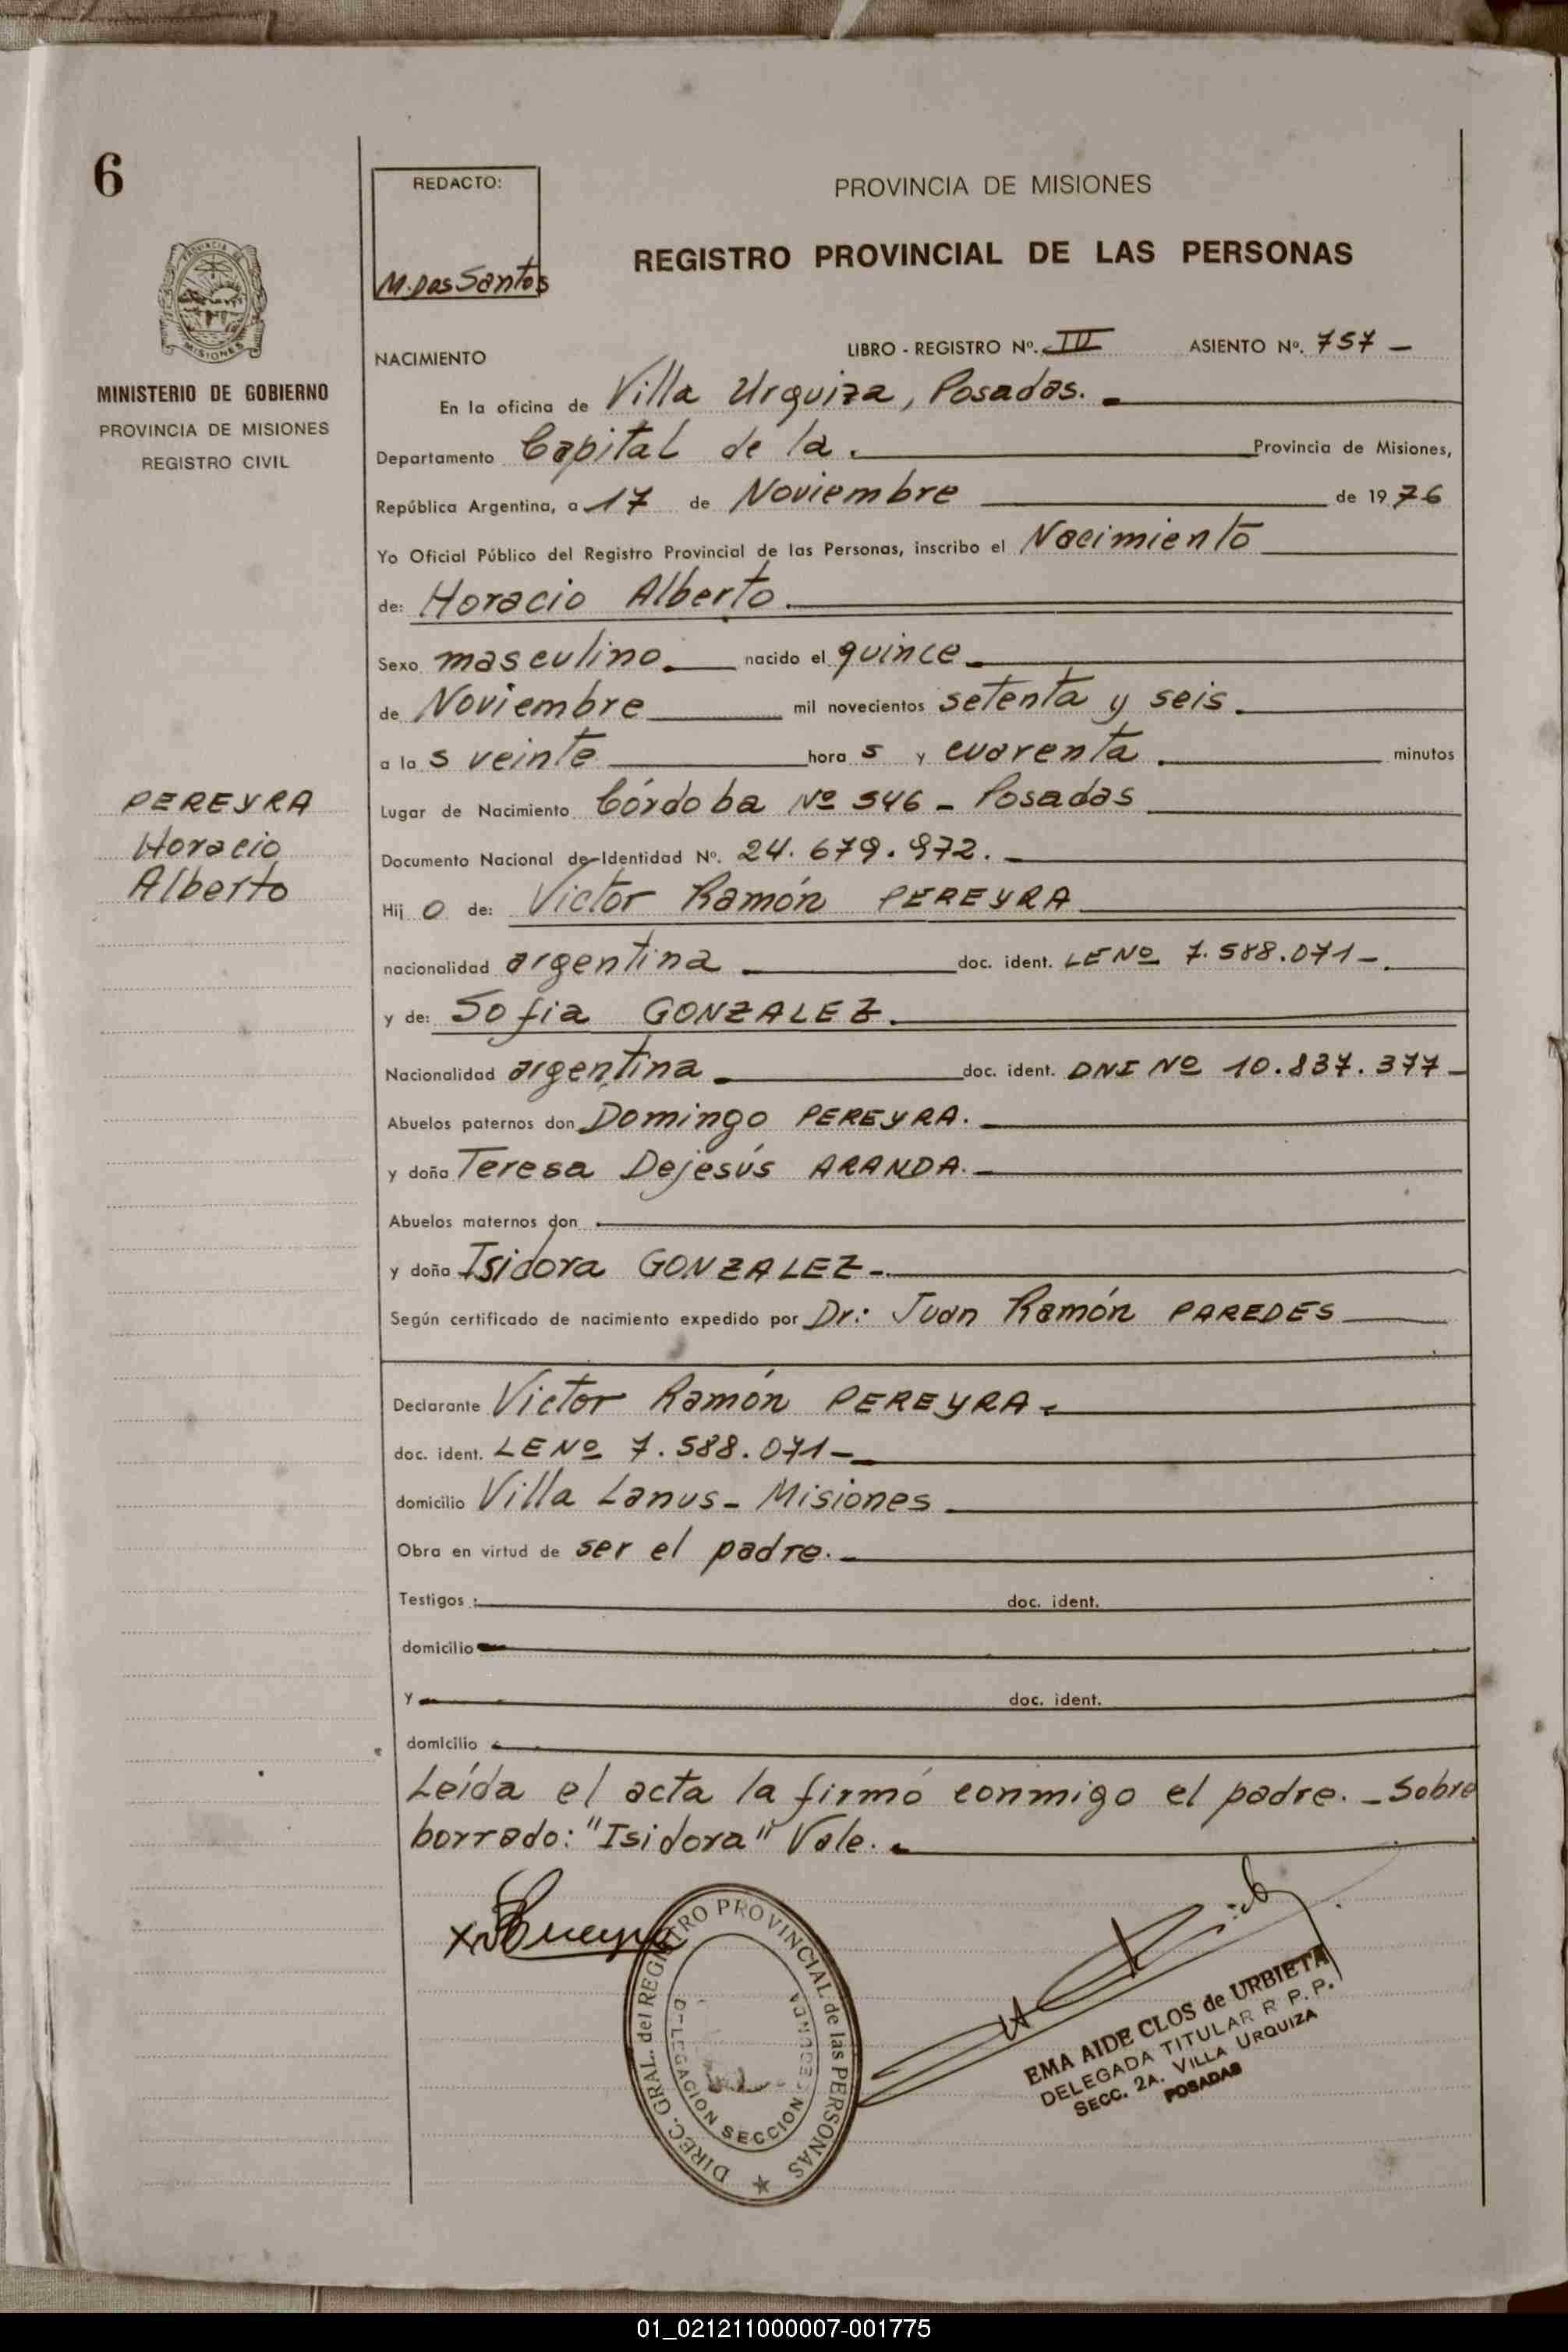 6
REDACTO:
M. Dos Santos
PROVINCIA DE MISIONES
REGISTRO PROVINCIAL DE LAS PERSONAS
PROVINCIA
MISIONES
MINISTERIO DE GOBIERNO
PROVINCIA DE MISIONES
REGISTRO CIVIL
LIBRO - REGISTRO Nº. ASIENTO Nº. 757 -
NACIMIENTO
En la oficina de Villa Urquiza, Posadas.
Departamento Capital de la. Provincia de Misiones,
República Argentina, a 17 de Noviembre de 1976
Yo Oficial Público del Registro Provincial de las Personas, inscribo el Nacimiento
de: Horacio Alberto
Sexo masculino. nacido el quince
de Noviembre mil novecientos setenta y seis.
a las veinte horas y cuarenta. minutos
Lugar de Nacimiento Córdoba Nº 546 - Posadas
Documento Nacional de Identidad Nº. 24.679.972.
PEREYRA
Horacio
Alberto
Hijo de: Victor Ramón PEREYRA
nacionalidad argentina doc. ident. LE Nº 7.588.071-.
y de: Sofia GONZALEZ.
Nacionalidad argentina doc. ident. DNI Nº 10.837.377-
Abuelos paternos don Domingo PEREYRA.
y doña Teresa Dejesús ARANDA.
Abuelos maternos don
y doña Isidora GONZALEZ-
Según certificado de nacimiento expedido por Dr: Juan Ramón PAREDES
Declarante Victor Ramón PEREYRA
doc. ident. LE Nº 7.588.071-
domicilio Villa Lanus - Misiones
Obra en virtud de ser el padre.
Testigos : doc. ident.
domicilio
y doc. ident.
domicilio
Leída el acta la firmó conmigo el padre. - Sobre
borrado: "Isidora" Vale.
DIREC. GRAL. del REGISTRO PROVINCIAL de las PERSONAS
DELEGACION SECCION SEGUNDA
EMA AIDE CLOS de URBIETA
DELEGADA TITULAR R P. P.
SECC. 2A. VILLA URQUIZA
POSADAS
01_021211000007-001775